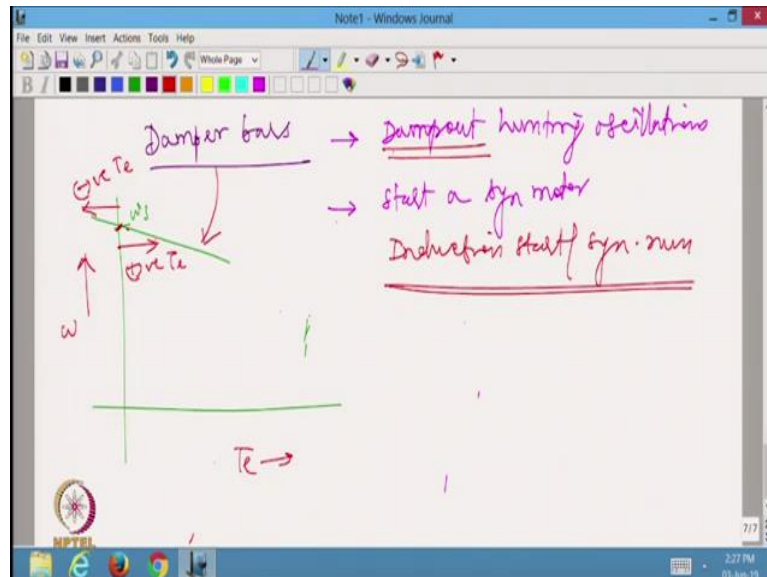 Note1 - Windows Journal
File Edit View Insert Actions Tools Help
Whole Page
B I
Damper bars → Dampout hunting oscillations
→ start a syn motor
Induction start/ syn. run
⊖ve Te
ωs
⊕ve Te
ω
Te →
NPTEL
7/7
2:27 PM
03-Jun-19